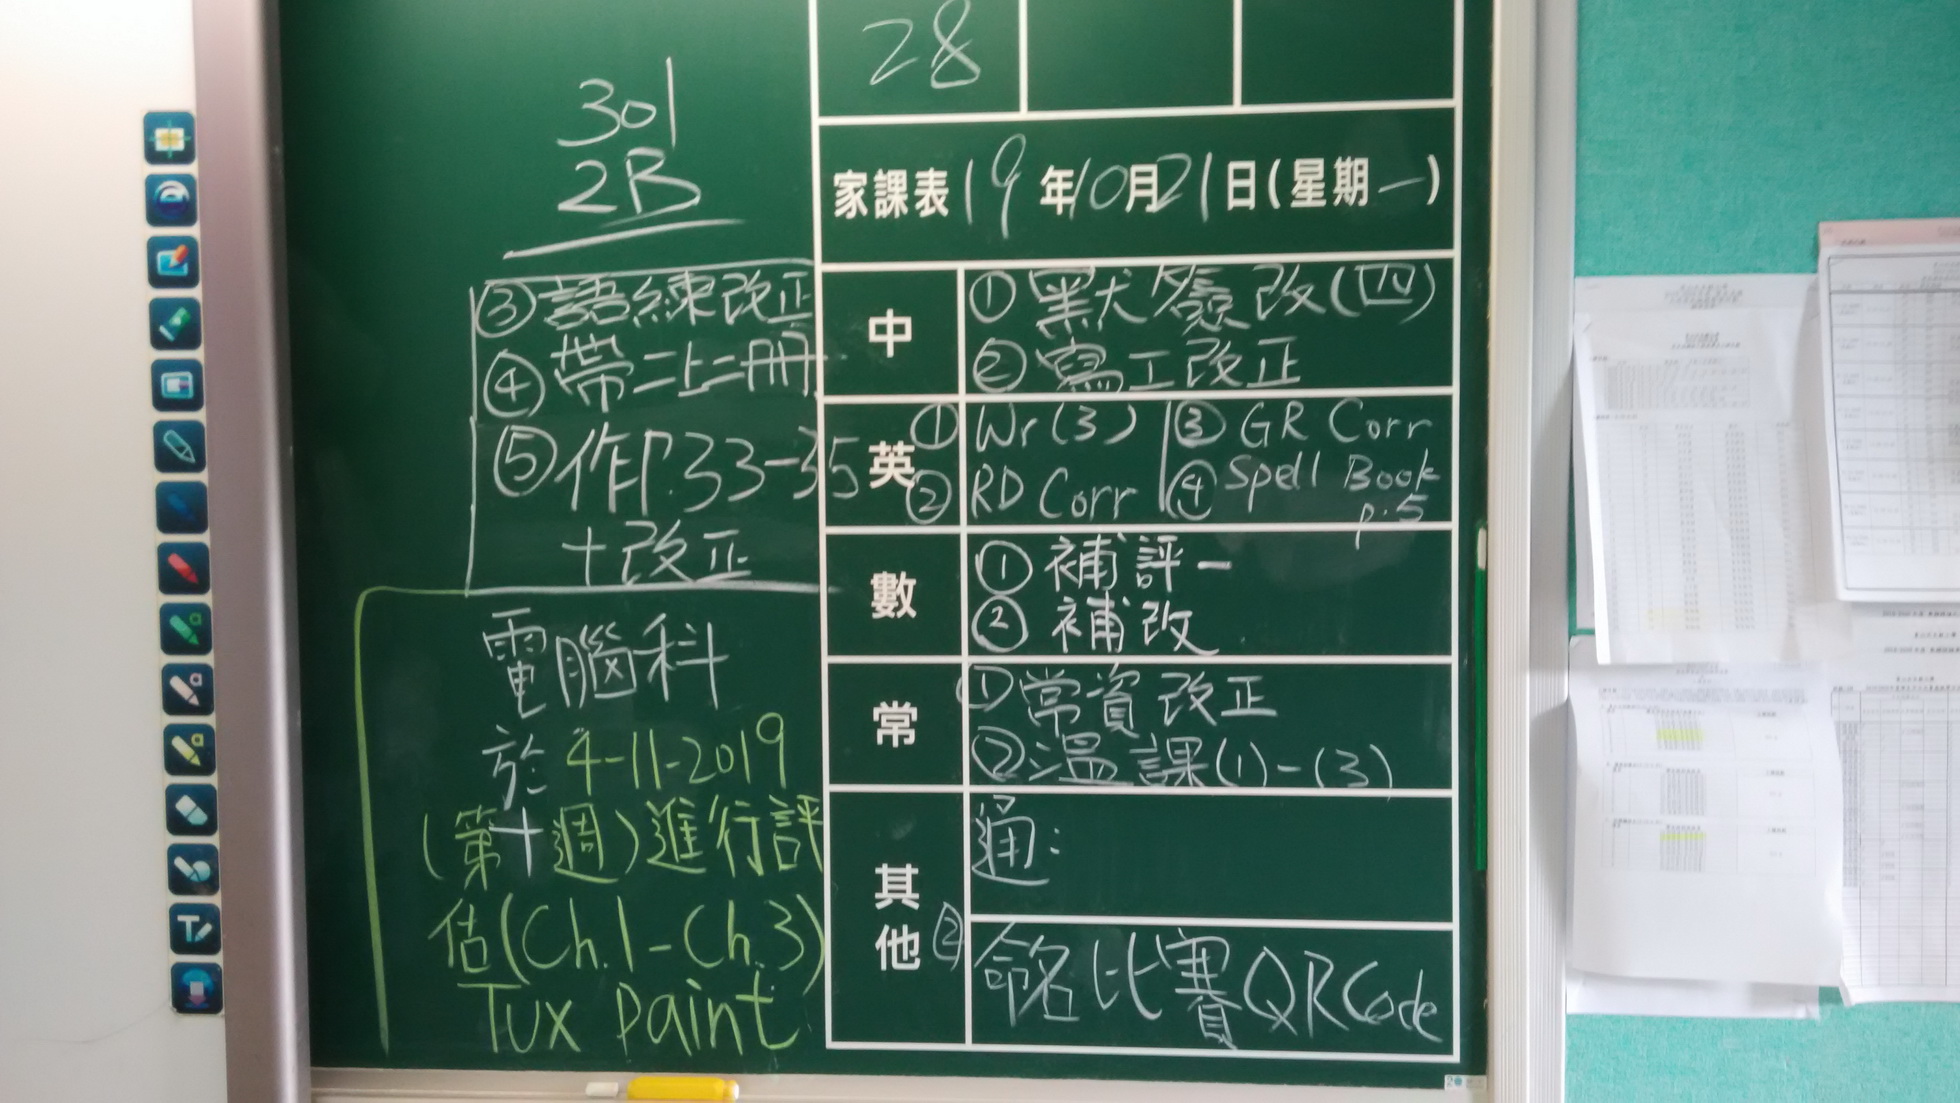 28
301
2B
家課表 19年10月21日(星期一)
中
① 默簽改(四)
② 寫工改正
③ 語練改正
④ 帶二上二冊
⑤ 作P.33-35
+改正
英
① Wr(3)
② RD Corr
③ GR Corr
④ Spell Book
p.5
數
① 補評一
② 補改
常
① 常資改正
② 溫課(1)-(3)
其他
通:
② 命名比賽QR Code
電腦科
於 4-11-2019
(第十週)進行評
估(Ch.1-Ch.3)
Tux paint